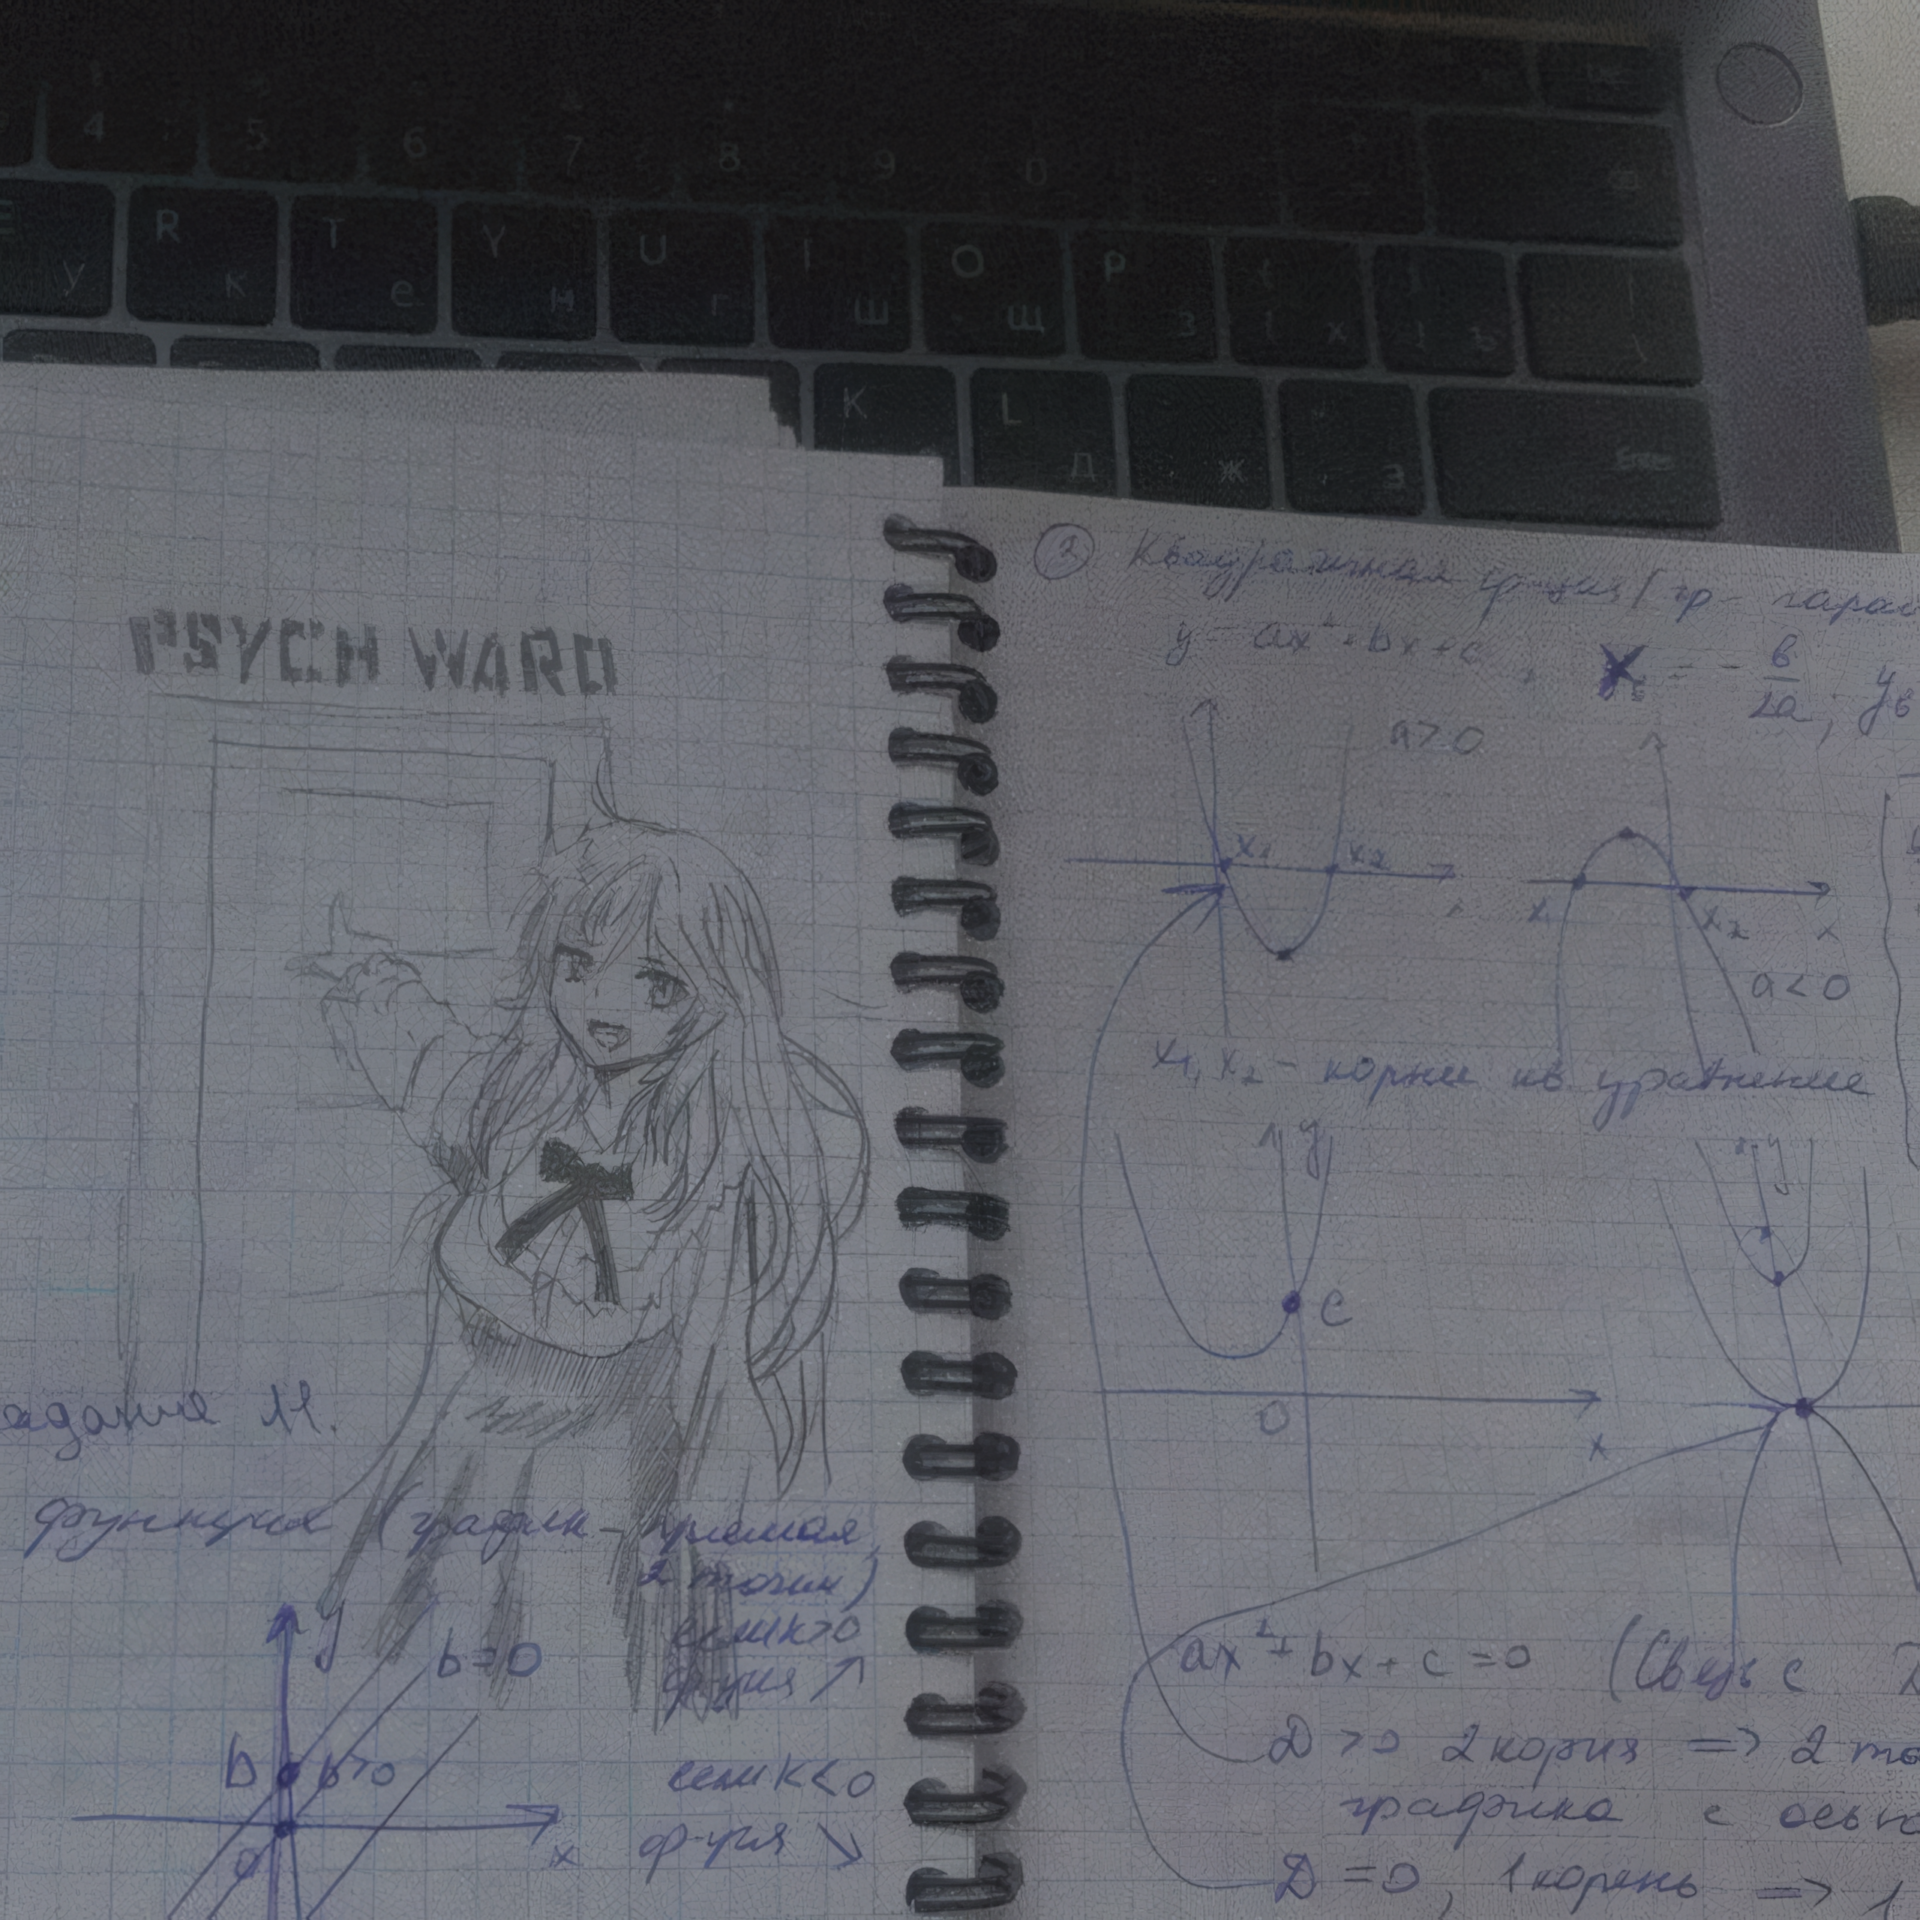 4 5 6 7 8 9 0
R T Y U I O P
у к е н г ш щ з х ъ
K L
Д Ж Э
PSYCH WARD
задание 11.
функция (график - прямая,
2 точки)
если k>0
ф-ция ↗
y
b=0
b b>0
x
0
если k<0
ф-ция ↘
② Квадратичная функция (гр - парабол
y = ax² + bx + c, xв = - в/2a; yв
a>0
x₁ x₂
x₁ x₂ x
a<0
x₁, x₂ - корни кв. уравнение
y
c
0
x
y
ax² + bx + c = 0 (Связь с
D>0 2 корня => 2 то
графика с осью
D=0, 1 корень => 1